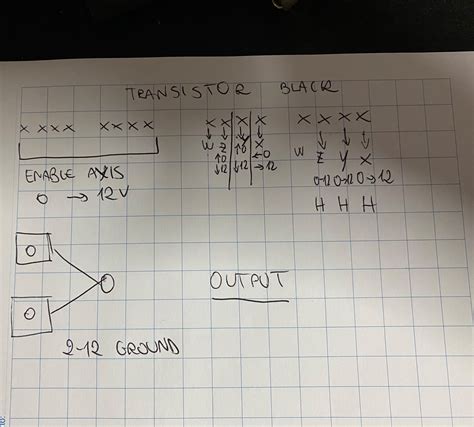 TRANSISTOR BLACK
X X X X X X X X X X X X X X X X
W Z Y X W Z Y X
↑0 ↑0 ←0
↓12 ↓12 →12
0-12 0→12 0→12
H H H
ENABLE AXIS
0 → 12V
0
0
0
OUTPUT
2-12 GROUND